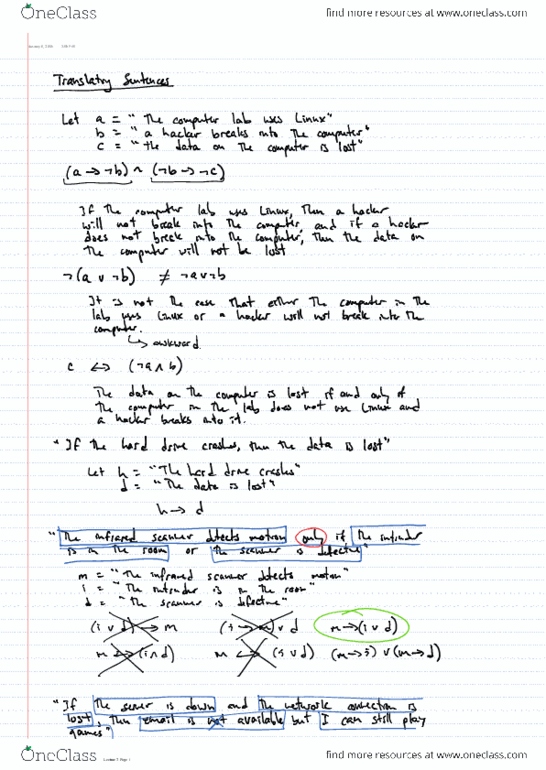 OneClass
find more resources at www.oneclass.com
Translating Sentences
Let a = "The computer lab uses Linux"
b = "a hacker breaks into the computer"
c = "the data on the computer is lost"
(a → ¬b) ∧ (¬b → ¬c)
If the computer lab uses Linux, then a hacker
will not break into the computer, and if a hacker
does not break into the computer, then the data on
the computer will not be lost
¬(a ∨ ¬b) ≠ ¬a∨¬b
It is not the case that either the computer in the
lab uses Linux or a hacker will not break into the
computer.
↳ awkward.
c ↔ (¬a ∧ b)
The data on the computer is lost if and only if
the computer in the lab does not use Linux and
a hacker breaks into it.
"If the hard drive crashes, then the data is lost"
Let h = "The hard drive crashes"
d = "The data is lost"
h → d
"The infrared scanner detects motion only if the intruder
is in the room or the scanner is defective"
m = "The infrared scanner detects motion"
i = "The intruder is in the room"
d = "The scanner is defective"
(i ∨ d) → m (i → m) ∨ d m → (i ∨ d)
m → (i ∧ d) m ↔ (i ∨ d) (m → i) ∨ (m → d)
"If the server is down and the network connection is
lost, then email is not available but I can still play
games"
OneClass
find more resources at www.oneclass.com